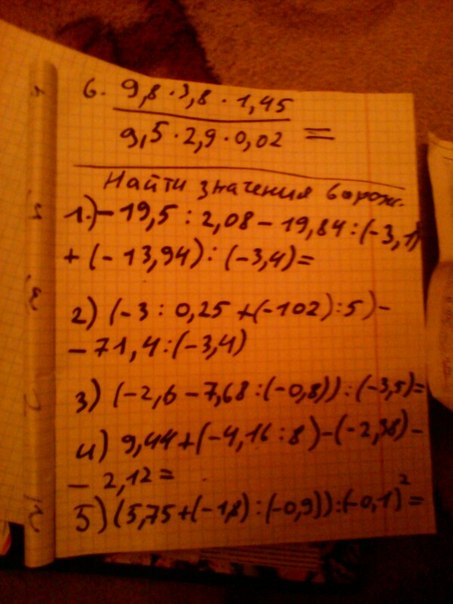 6. 9,8 · 3,8 · 1,45
9,5 · 2,9 · 0,02 =
Найти значения выраж.
1.) - 19,5 : 2,08 - 19,84 : (-3,1)
+ (- 13,94) : (-3,4) =
2) (-3 : 0,25 + (-102) : 5) -
- 71,4 : (-3,4)
3) (-2,6 - 7,68 : (-0,8)) : (-3,5) =
4) 9,44 + (-4,16 : 8) - (-2,38) -
- 2,12 =
5) (5,75 + (-1,8) : (-0,9)) : (-0,1)² =